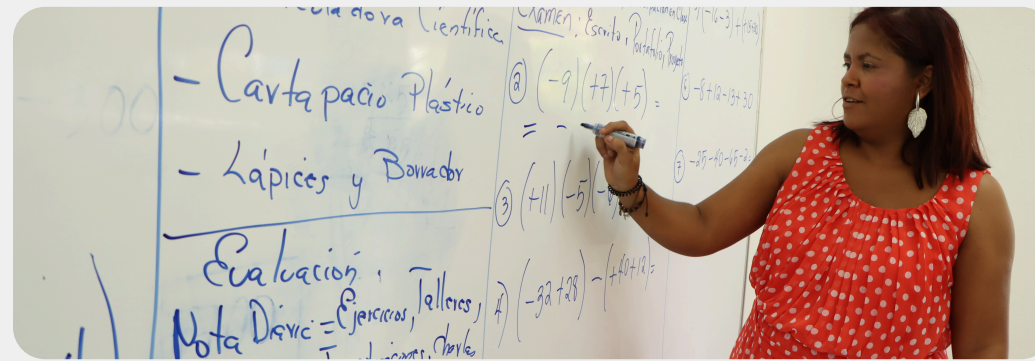 Científica
- Cartapacio Plástico
- Lápices y Borrador
Evaluación.
Nota Diaria = Ejercicios, Talleres,
Charlas
Examen: Escrito, Portafolio,
② (-9)(+7)(+5) =
= -
③ (+11)(-5)(-
4) (-32+28) - (+40+12) =
-8+12-13+30
⑦ -25-40-65-2=